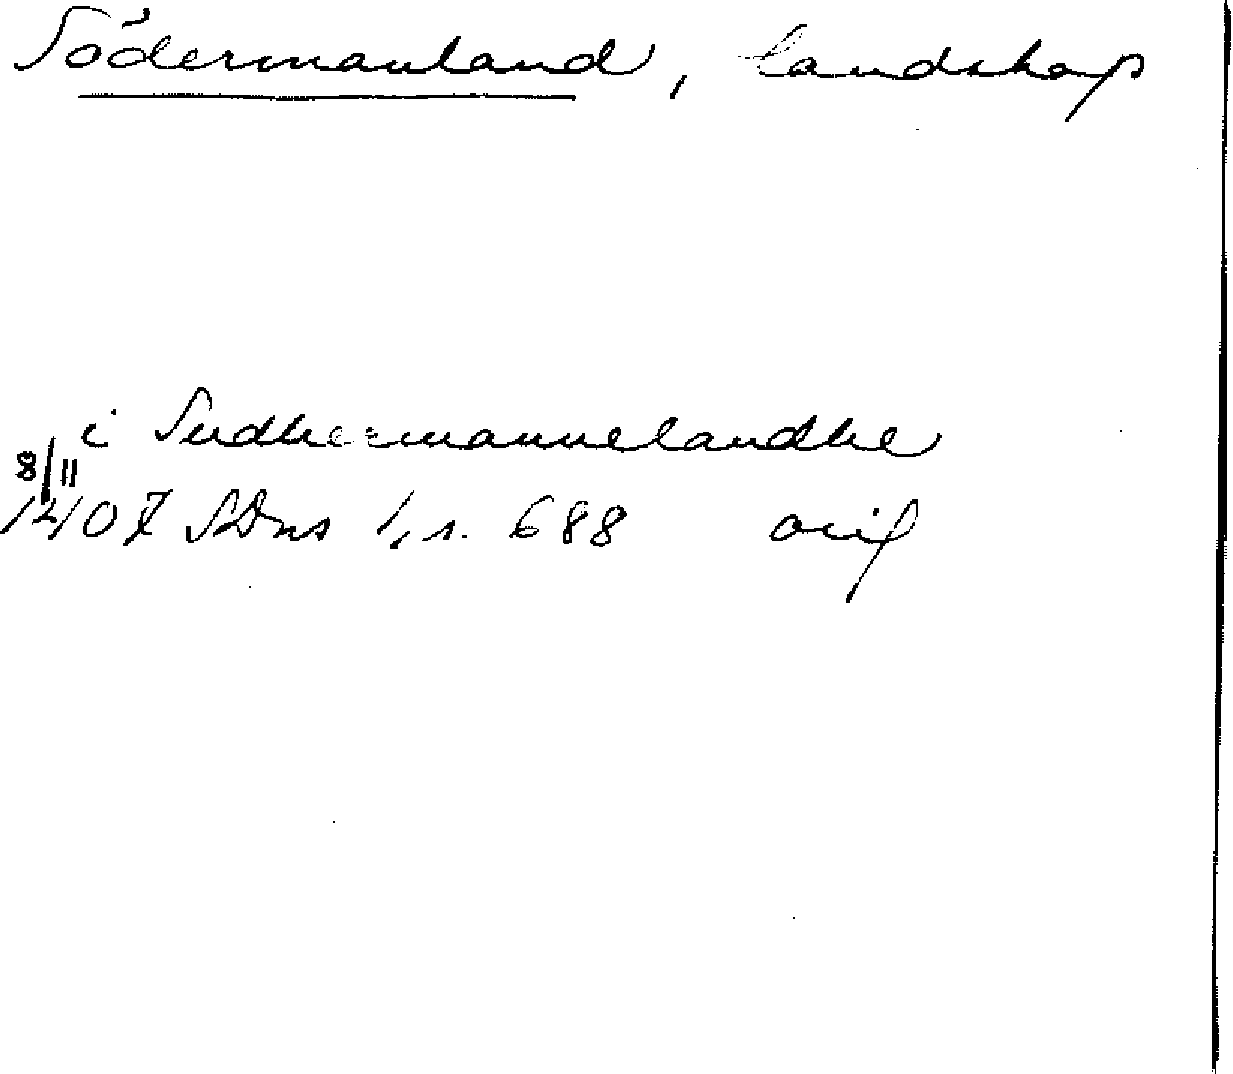 Södermanland, landskap
i Sudhermannelandhe
8/11
1407 SDns 1, s. 688 orig